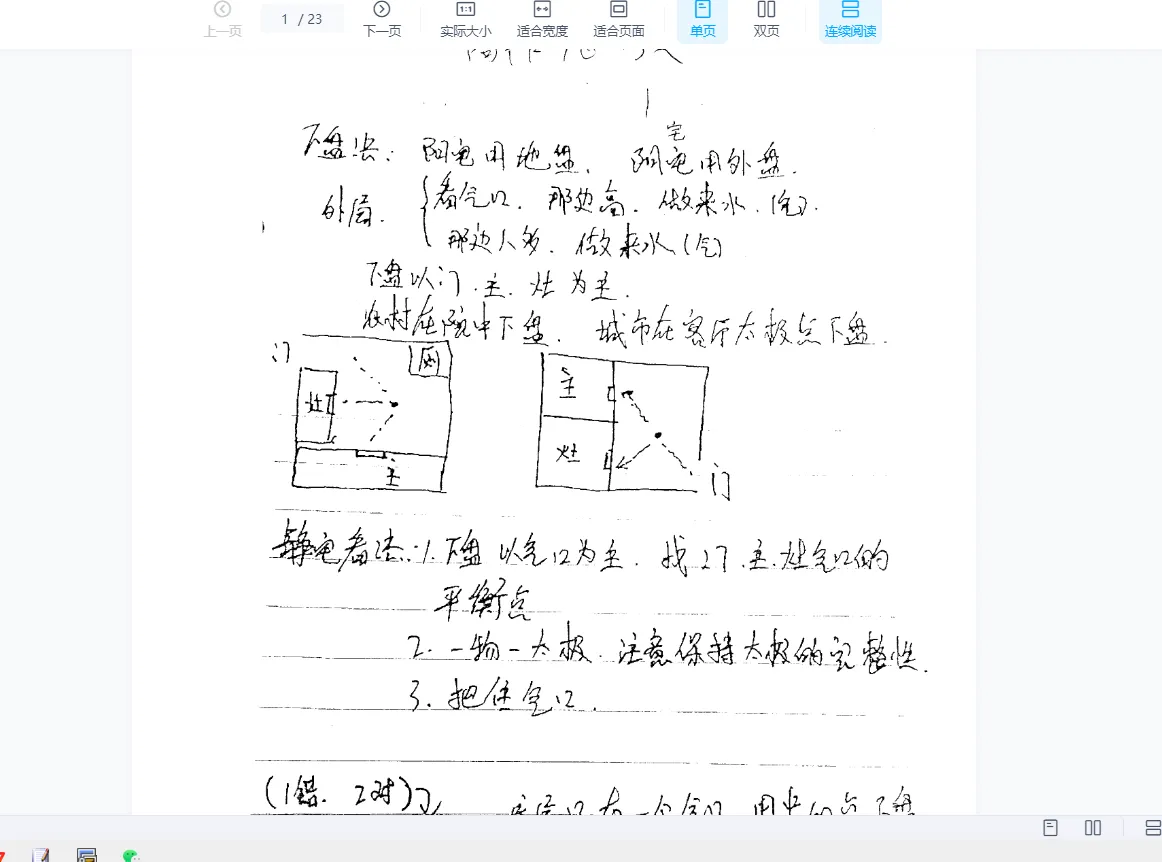 1 / 23
上一页 下一页 实际大小 适合宽度 适合页面 单页 双页 连续阅读
宅
下盘法: 阴宅用地盘、阳宅用外盘.
外局. 看气口、那边高、做来水.(气).
那边人多、做来水(气)
下盘以门.主.灶为主.
农村在院中下盘. 城市在客厅太极点下盘.
门 厕
灶
主
主
灶
门
静宅看法:1.下盘以气口为主. 找门.主.灶气口的
平衡点
2. 一物一太极. 注意保持太极的完整性.
3. 把住气口.
(1错. 2对)